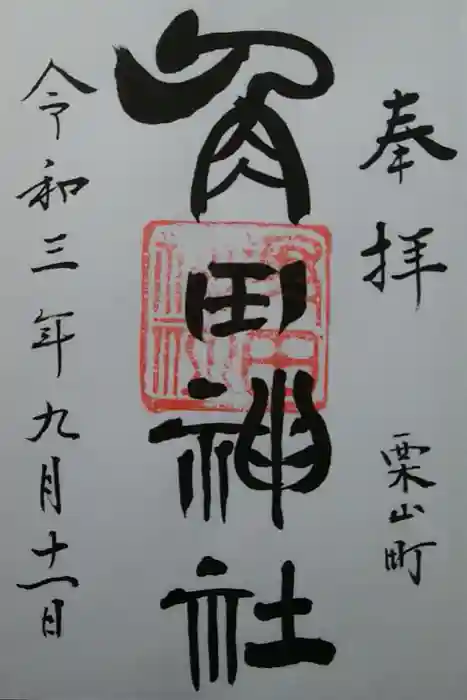 奉拝 栗山町
角田神社
令和三年九月十一日